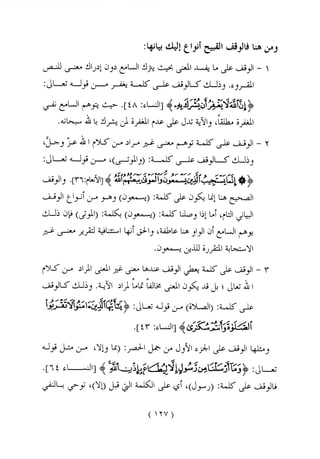 ومن هنا فالوقف القبيح أنواع إليك بيانها:
١ - الوقف على ما يفسد المعنى بحيث يترك السامع دون إدراك معنى للنص
المقروء. وذلك كالوقف على كلمة يغفر من قوله تعالى:
﴿إِنَّ ٱللَّهَ لَا يَغۡفِرُ أَن يُشۡرَكَ بِهِۦ﴾ [النساء: ٤٨]. حيث يتوهم السامع نفي
المغفرة مطلقاً، والآية تدل على عدم المغفرة لمن يشرك بالله سبحانه.
٢ - الوقف على كلمة توهم معنى غير مراد من كلام الله عز وجل،
وذلك كالوقف على كلمة: (والموتى)، من قوله تعالى:
﴿۞ إِنَّمَا يَسۡتَجِيبُ ٱلَّذِينَ يَسۡمَعُونَۘ وَٱلۡمَوۡتَىٰ يَبۡعَثُهُمُ ٱللَّهُ﴾ [الأنعام: ٣٦]. والوقف
الصحيح هنا إما يكون على كلمة: (يسمعون) وهو من أنواع الوقف
التالي البيان، أما إذا وصلنا كلمة: (يسمعون) بكلمة: (الموتى) فإن ذلك
يوهم السامع أن الواو هنا عاطفة، والحق أنها استئنافية لتقرير معنى غير
الاستجابة المقررة للذين يسمعون.
٣ - الوقف على كلمة يعطي الوقف عندها معنى غير المعنى المراد من كلام
الله تعالى؛ بل قد يكون المعنى مخالفاً تماماً لمراد الآية. وذلك كالوقف
على كلمة: (الصلاة) من قوله تعالى: ﴿يَٰٓأَيُّهَا ٱلَّذِينَ ءَامَنُواْ لَا تَقۡرَبُواْ
ٱلصَّلَوٰةَ وَأَنتُمۡ سُكَٰرَىٰ﴾ [النساء: ٤٣].
ومثلها الوقف على الجزء الأول من جمل الحصر: (بما وإلا)، من مثل قوله
تعالى: ﴿وَمَآ أَرۡسَلۡنَا مِن رَّسُولٍ إِلَّا لِيُطَاعَ بِإِذۡنِ ٱللَّهِ﴾ [النساء: ٦٤].
فالوقف على كلمة: (رسول)، أي على الكلمة التي قبل (إلا)، توحي بالنفي
( ١٢٧ )